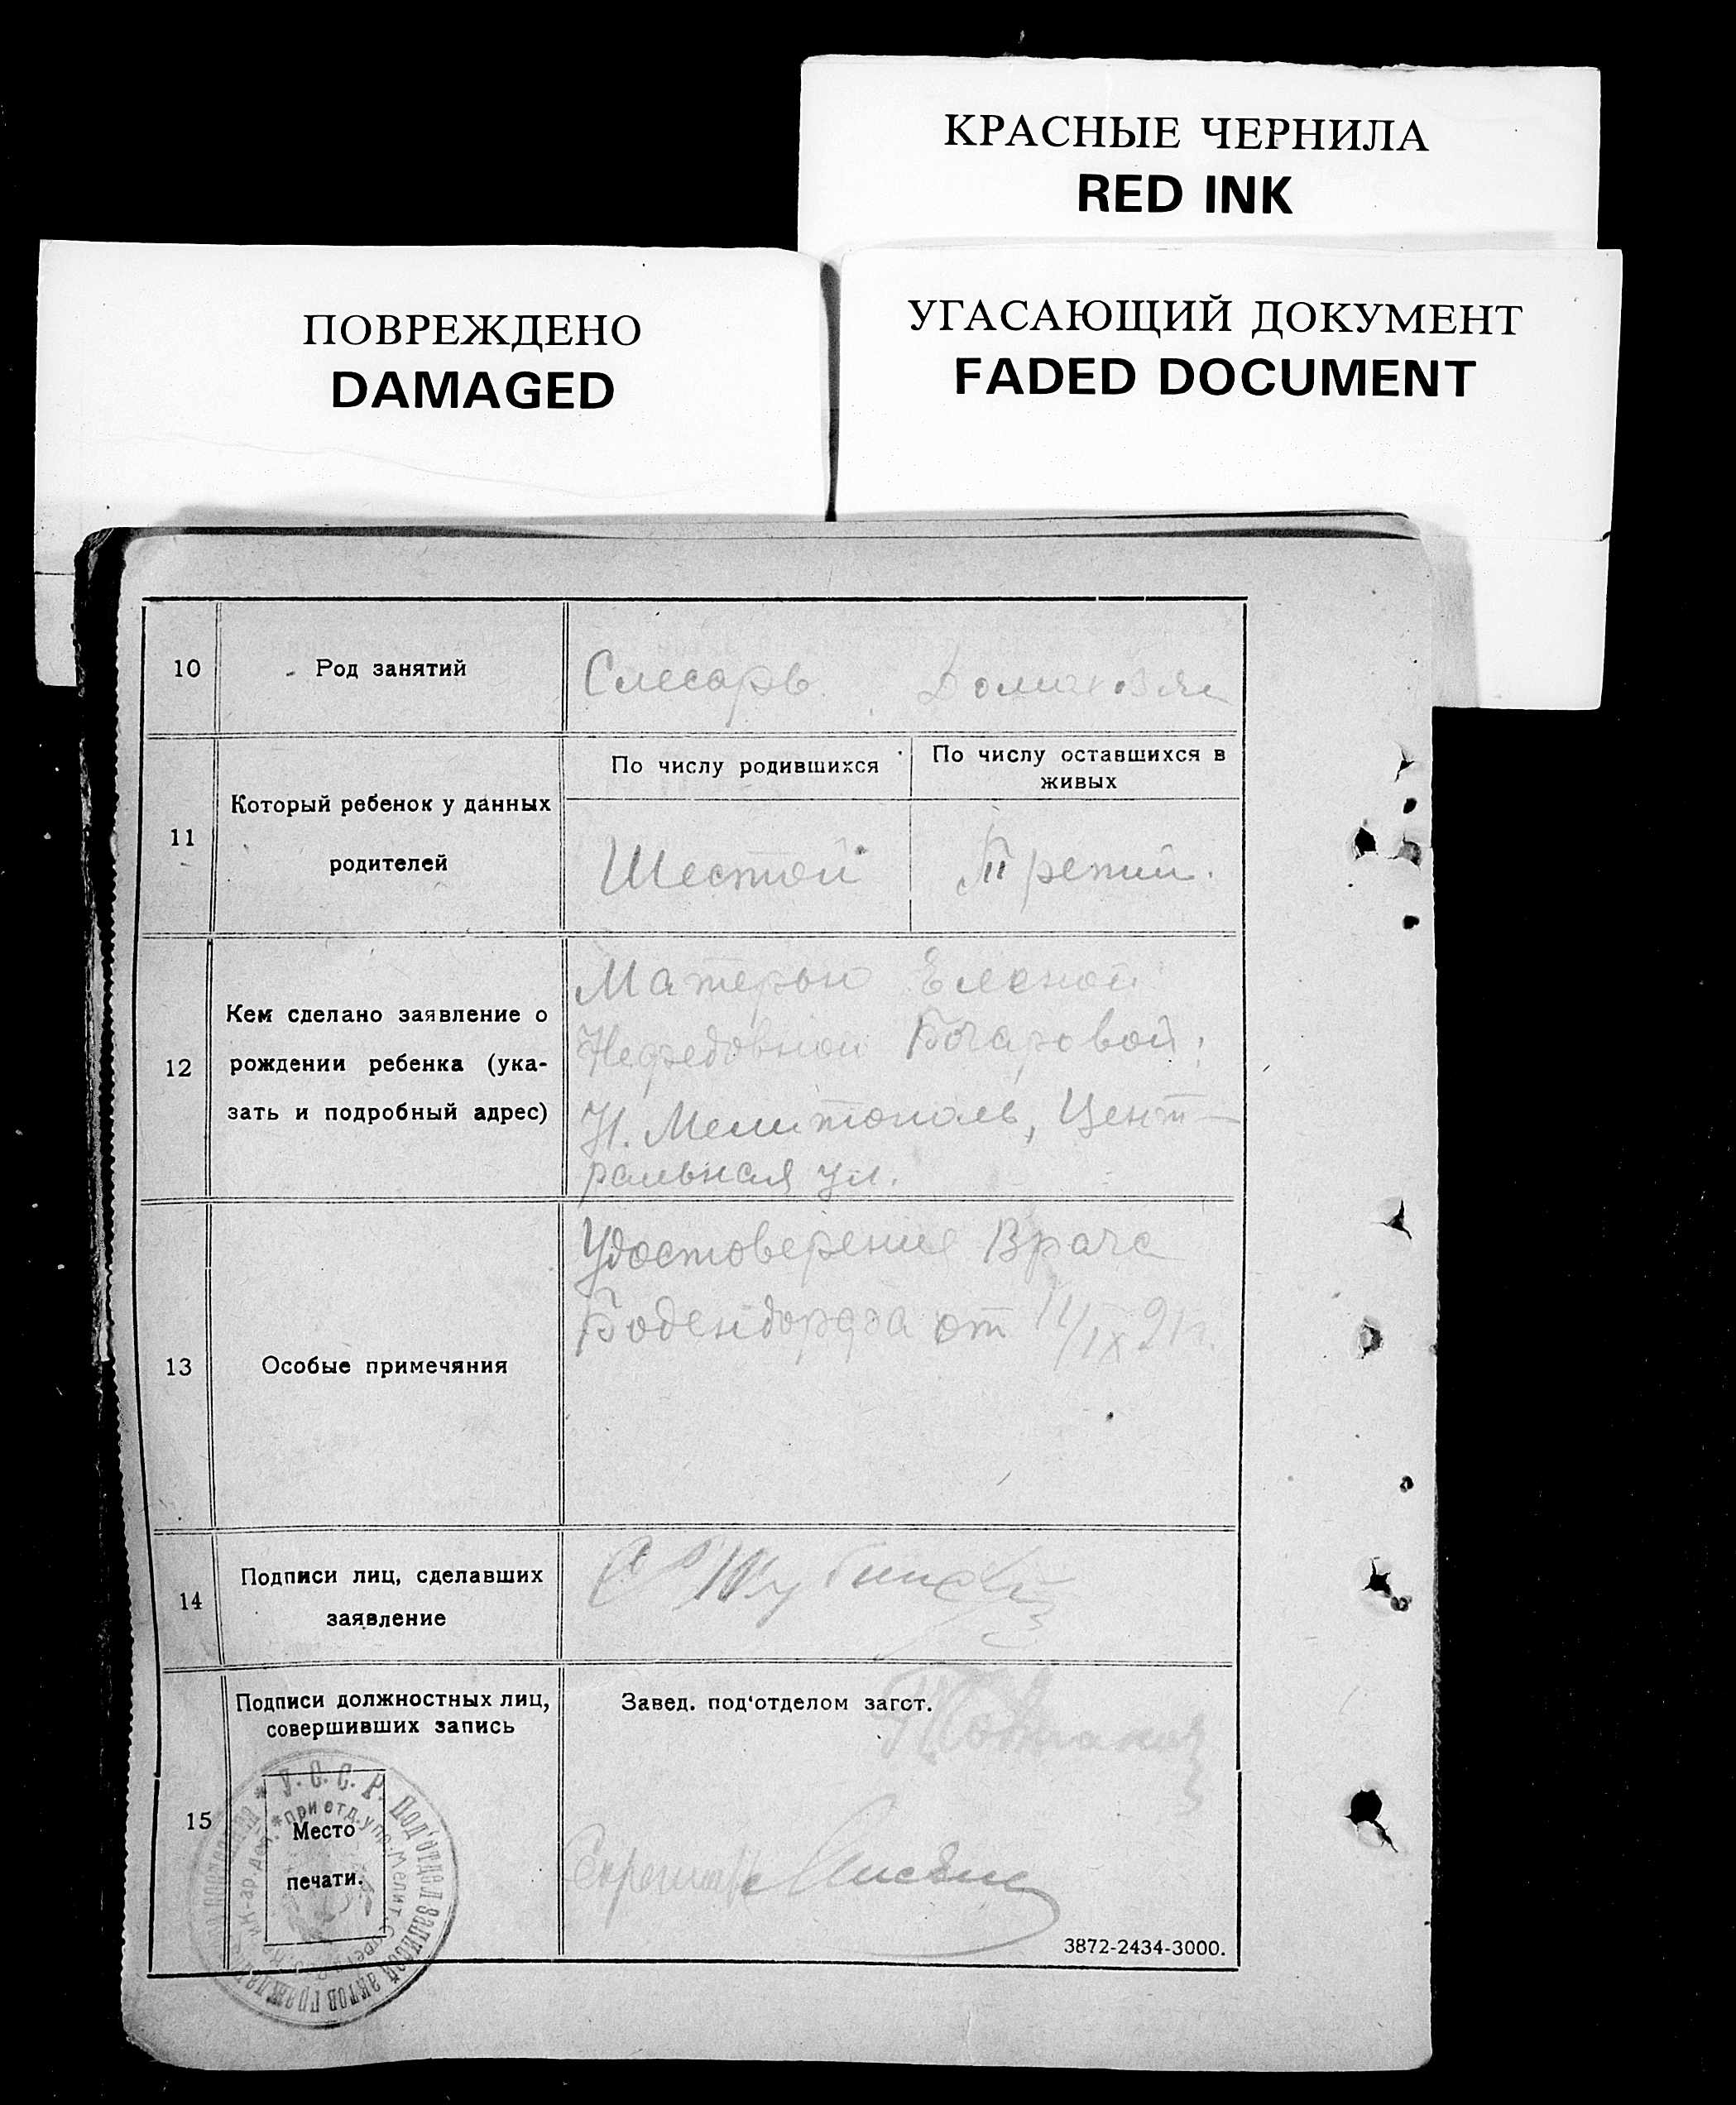 КРАСНЫЕ ЧЕРНИЛА
RED INK
ПОВРЕЖДЕНО
DAMAGED
УГАСАЮЩИЙ ДОКУМЕНТ
FADED DOCUMENT
10
Род занятий
Слесарь
11
Который ребенок у данных
родителей
По числу родившихся
По числу оставшихся в
живых
Шестой
Третий.
12
Кем сделано заявление о
рождении ребенка (ука-
зать и подробный адрес)
Матерью Еленой
Нефедовной Бочаровой;
Н. Мелитополь, Цент-
ральная ул.
13
Особые примечяния
Удостоверение Врача
Бодендорфа от
14
Подписи лиц, сделавших
заявление
15
Подписи должностных лиц,
совершивших запись
Завед. под‘отделом загст.
У. С. С. Р. Под‘отдел записей актов
при отд. упр. Мелит.
Место
печати.
3872-2434-3000.